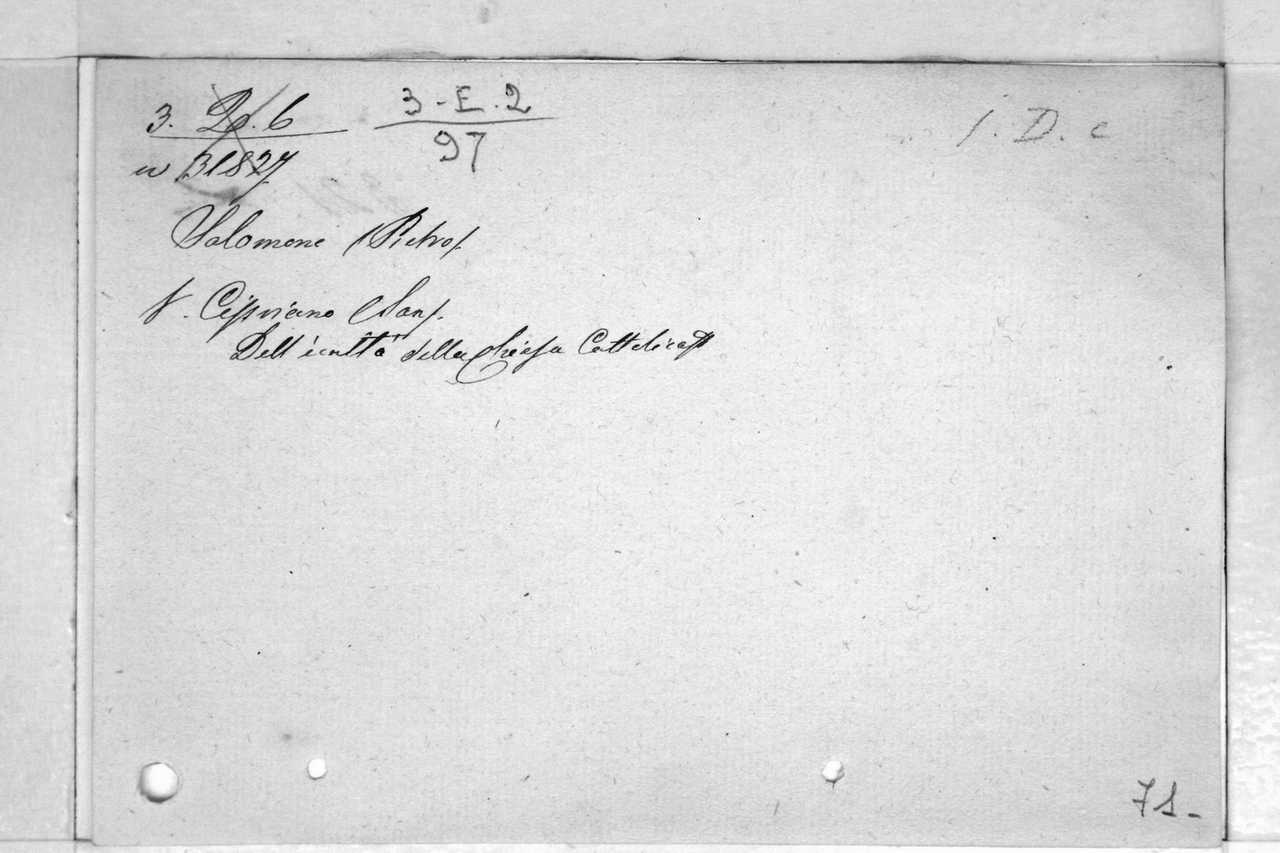 3. D. 6 3-E.2 1. D. c
97
n 31827
Salomone (Pietro).
V. Cipriano (San).
Dell'unità della Chiesa Cattolica
71-